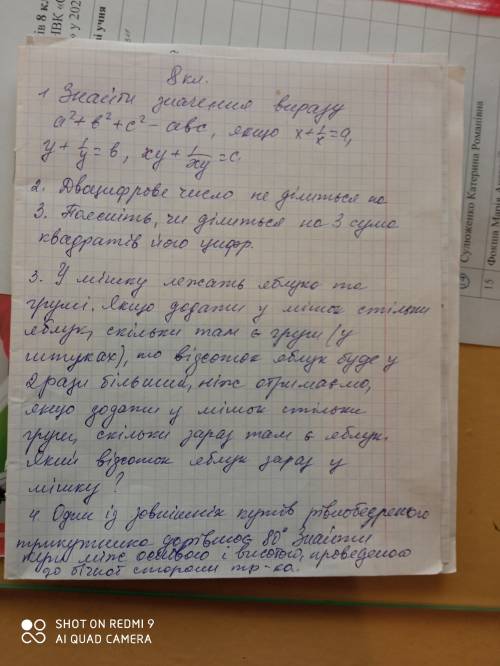 ів 8 кл
НВК «О
у 202
ені учня
8 кл.
1 Знайти значення виразу
a²+b²+c²-abc, якщо x+1/x=a,
y+1/y=b, xy+1/xy=c.
2. Двоцифрове число не ділиться на
3. Поясніть, чи ділиться на 3 сума
квадратів його цифр.
3. У мішку лежать яблука та
груші. Якщо додати у мішок стільки
яблук, скільки там є груш (у
штуках), то відсоток яблук буде у
2 рази більший, ніж отримаємо,
якщо додати у мішок стільки
груш, скільки зараз там є яблук.
Який відсоток яблук зараз у
мішку?
4. Один із зовнішніх кутів рівнобедреного
трикутника дорівнює 80° Знайти
кут між основою і висотою, проведеною
до бічної сторони тр-ка.
14 Сулюженко Катерина Романівна
15 Фоміна Марія
SHOT ON REDMI 9
AI QUAD CAMERA